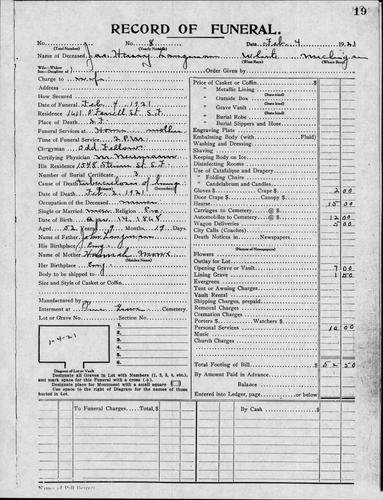 19
RECORD OF FUNERAL.
No. 8 Date, Feb. 4 1921
(Total Number) (Yearly Number)
Name of Deceased, Jas. Henry White Michigan
(What Race) (Where Born)
Wife—Widow
Son—Daughter of
Charge to wife
Address
How Secured
Date of Funeral Feb. 4 1921
Residence 1641 O'Farrell St S.F.
Place of Death S.F.
Funeral Services at Home
Time of Service 2 P.M.
Clergyman Odd Fellows
Certifying Physician M.
His Residence 1548 St S.F.
Number of Burial Certificate 3
Cause of Death tuberculosis of lung
Date of Death Feb. 2 1921
Occupation of the Deceased
Single or Married Religion
Date of Birth 14, 1868
Aged 52 Years, Months, 19 Days.
Name of Father John
His Birthplace Eng.
Name of Mother Hannah
(Maiden Name)
Her Birthplace Eng.
Body to be shipped to
Size and Style of Casket or Coffin
Manufactured by
Interment at Cemetery.
Lot or Grave No. Section No.
1-4-21
1.
2.
3.
4.
5.
6.
Diagram of Lot or Vault
Designate all Graves in Lot with Numbers (1, 2, 3, 4, etc.),
and mark space for this Funeral with a cross (+).
Designate place for Monument with a small square
Use space to the right of Diagram for the names of those
buried in Lot.
Order Given by
Price of Casket or Coffin $
" Metallic Lining
(State kind)
" Outside Box
(State kind)
" Grave Vault
(State kind)
" Burial Robe
(State kind)
" Burial Slippers and Hose
Engraving Plate
Embalming Body (with Fluid)
Washing and Dressing
Shaving
Keeping Body on Ice
Disinfecting Rooms
Use of Catafalque and Drapery
" Folding Chairs
" Candelabrum and Candles
Gloves $ Crape $ 2 00
Door Crape $ Canopy $
Hearse 15 00
Carriages to Cemetery @ $
Automobiles to Cemetery @ $ 12 00
Wagon Deliveries 5 00
City Calls (Coaches)
Death Notices in Newspapers
(Names of Newspapers)
Flowers
Outlay for Lot
Opening Grave or Vault 7 00
Lining Grave 1 50
Evergreen
Tent or Awning Charges
Vault Rental
Shipping Charges, prepaid
Removal Charges
Cremation Charges
Porters $ Watchers $
Personal Services 10 00
Music
Church Charges
Total Footing of Bill $ 52 50
By Amount Paid in Advance
Balance
Entered into Ledger, page or below.
To Funeral Charges Total, $ By Cash $